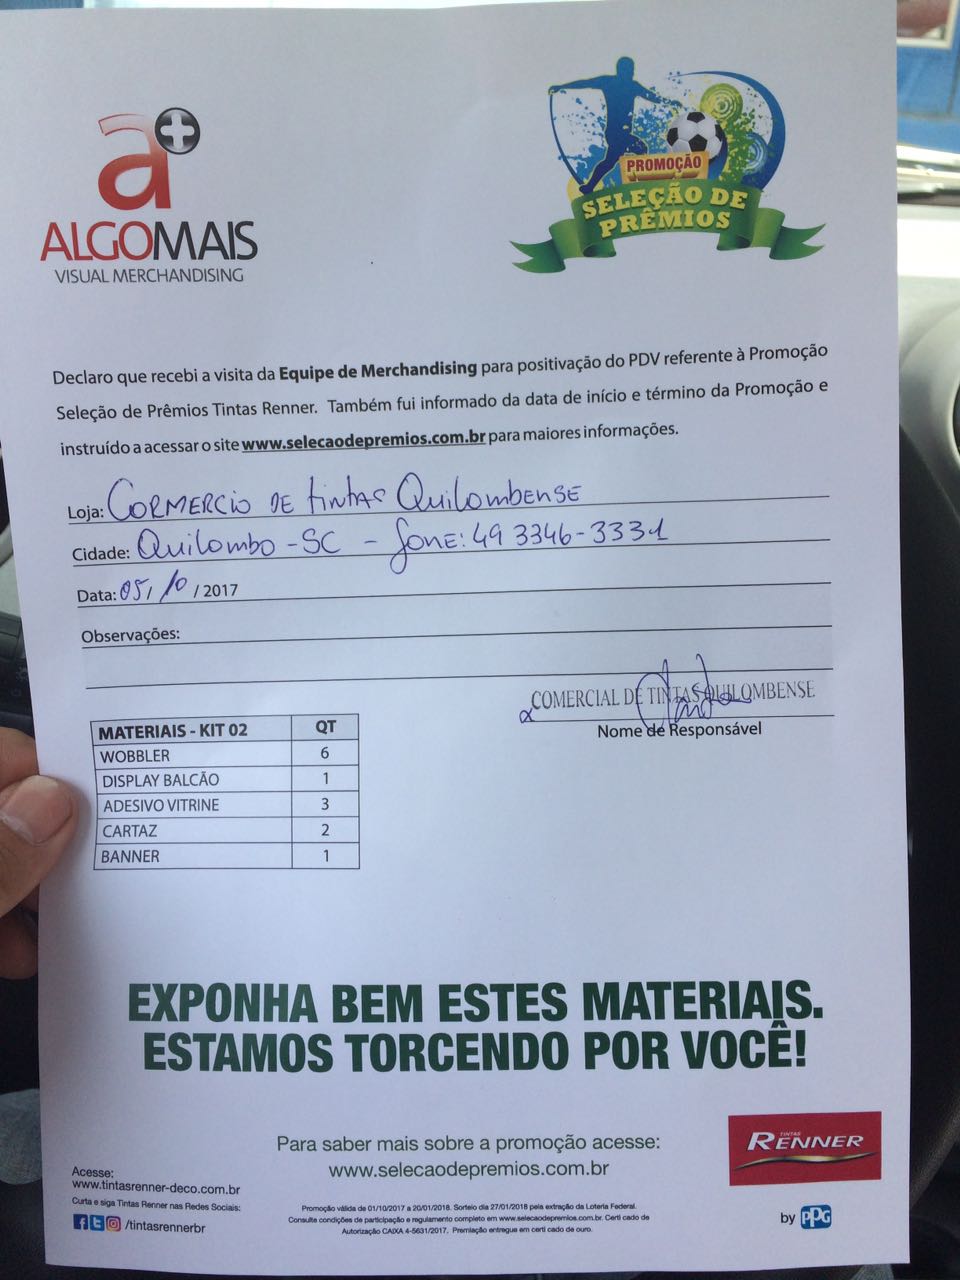 a+
ALGOMAIS
VISUAL MERCHANDISING
PROMOÇÃO
SELEÇÃO DE
PRÊMIOS
Declaro que recebi a visita da Equipe de Merchandising para positivação do PDV referente à Promoção
Seleção de Prêmios Tintas Renner. Também fui informado da data de início e término da Promoção e
instruído a acessar o site www.selecaodepremios.com.br para maiores informações.
Loja: Cormercio de tintas Quilombense
Cidade: Quilombo - SC - fone: 49 3346-3331
Data: 05/10 / 2017
Observações:
COMERCIAL DE TINTAS QUILOMBENSE
Nome de Responsável
MATERIAIS - KIT 02 QT
WOBBLER 6
DISPLAY BALCÃO 1
ADESIVO VITRINE 3
CARTAZ 2
BANNER 1
EXPONHA BEM ESTES MATERIAIS.
ESTAMOS TORCENDO POR VOCÊ!
Para saber mais sobre a promoção acesse:
www.selecaodepremios.com.br
TINTAS
RENNER
by PPG
Acesse:
www.tintasrenner-deco.com.br
Curta e siga Tintas Renner nas Redes Sociais:
/tintasrennerbr
Promoção válida de 01/10/2017 a 20/01/2018. Sorteio dia 27/01/2018 pela extração da Loteria Federal.
Consulte condições de participação e regulamento completo em www.selecaodepremios.com.br. Certi cado de
Autorização CAIXA 4-5631/2017. Premiação entregue em certi cado de ouro.